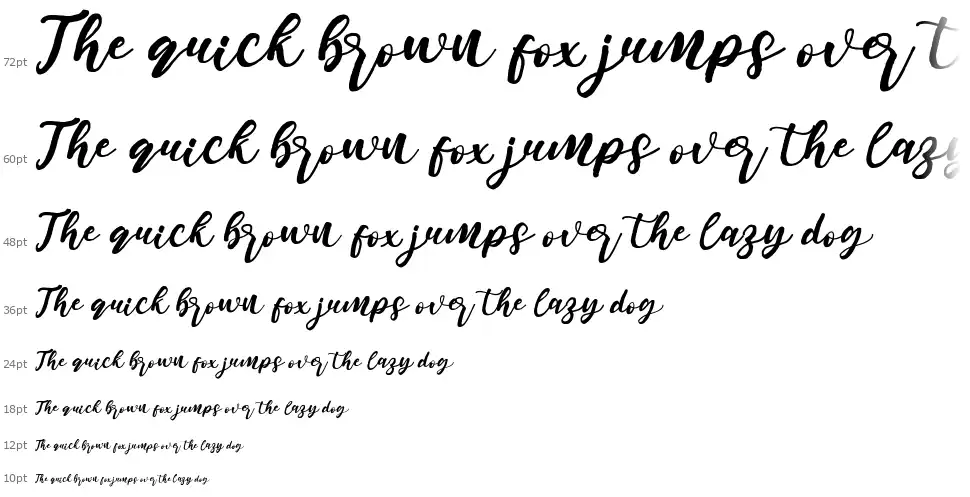 72pt The quick brown fox jumps over t
60pt The quick brown fox jumps over the lazy
48pt The quick brown fox jumps over the lazy dog
36pt The quick brown fox jumps over the lazy dog
24pt The quick brown fox jumps over the lazy dog
18pt The quick brown fox jumps over the lazy dog
12pt The quick brown fox jumps over the lazy dog
10pt The quick brown fox jumps over the lazy dog